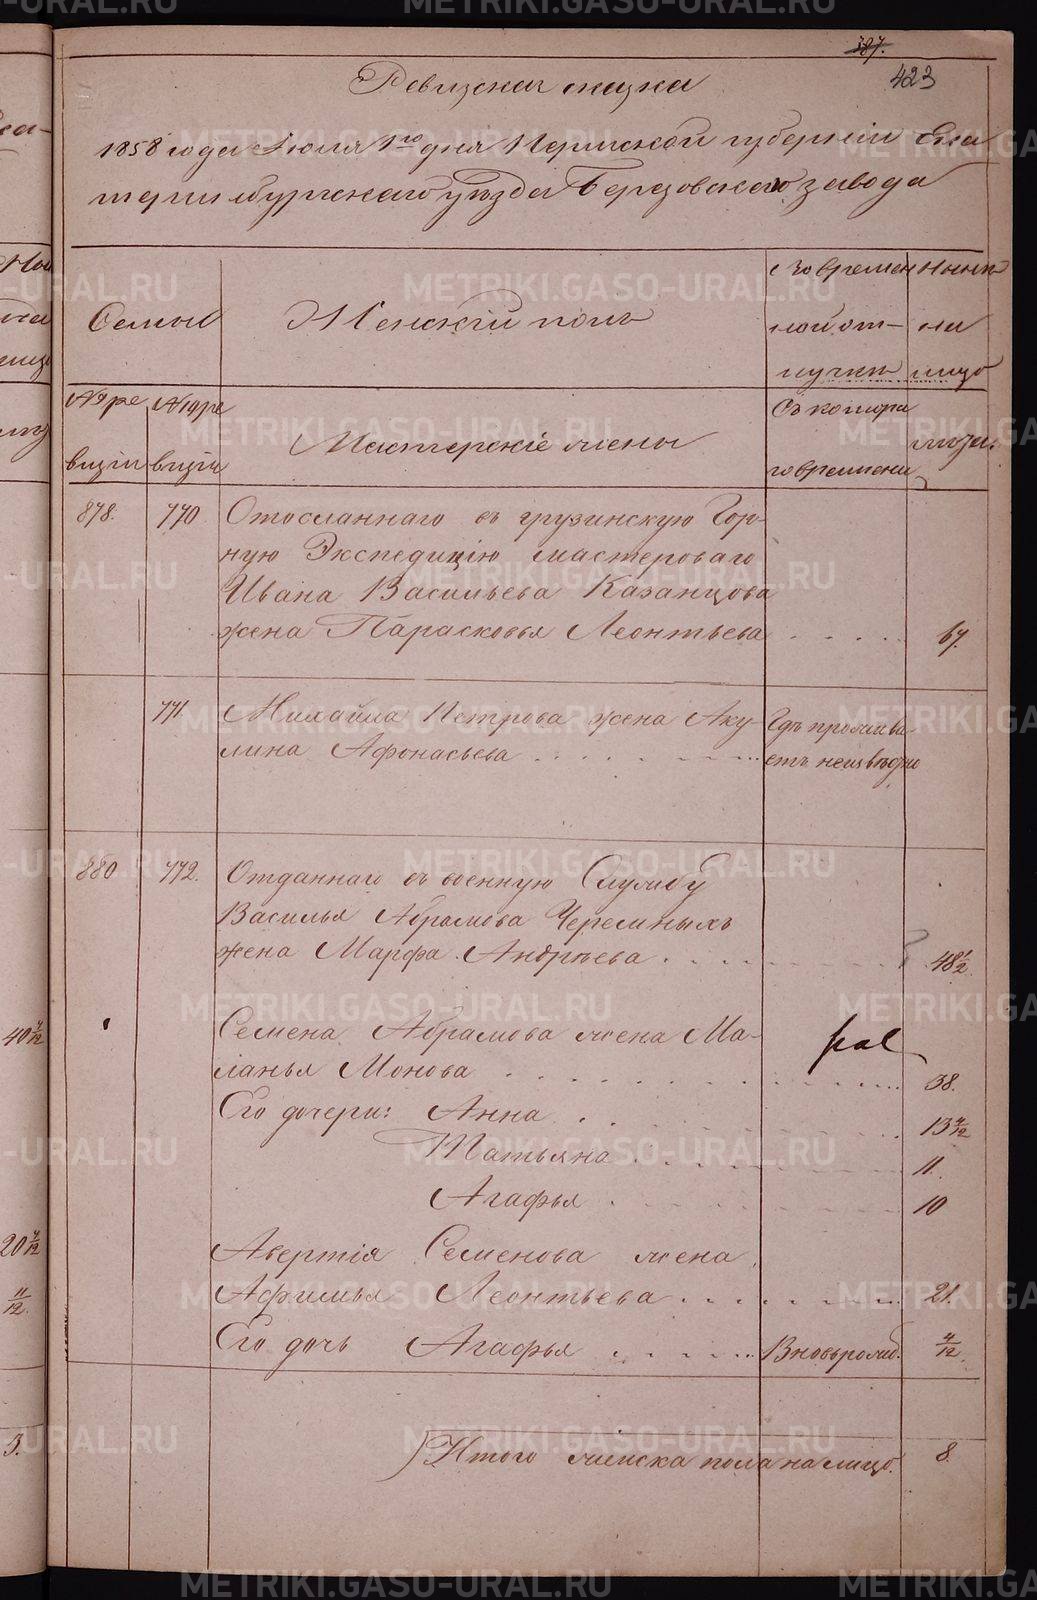 387.
423
Ревизская сказка
1858 года Июля 1го дня Пермской губернiи Ека
теринбургскаго уѣзда Березовскаго завода
Семьи
Женскiй полъ
Во времен
ной от-
лучкѣ
Нынѣ
на
лицо
№ ре
визiи
№ ре
визiи
Мастерскiе жены
Съ котора
го времени
Лѣта.
878. 770. Отосланнаго въ грузинскую Гор-
ную Экспедицiю мастероваго
Ивана Васильева Казанцова
жена Парасковья Леонтьева 67.
771. Михайла Петрова жена Аку-
лина Афонасьева
Гдѣ прожива
етъ неизвѣстно
880. 772. Отданнаго въ военную Службу
Василья Абрамова Черемныхъ
жена Марфа Андрѣева 48 1/2
Семена Абрамова жена Ма-
ланья Монова 38.
Его дочери: Анна 13 4/12
Татьяна 11.
Агафья 10
Авертiя Семенова жена
Афимья Леонтьева 21.
Его дочь Агафья Вновьрожд. 4/12.
Итого женска пола на лицо. 8.
40 4/12
20 4/12
11/12.
3.
METRIKI.GASO-URAL.RU